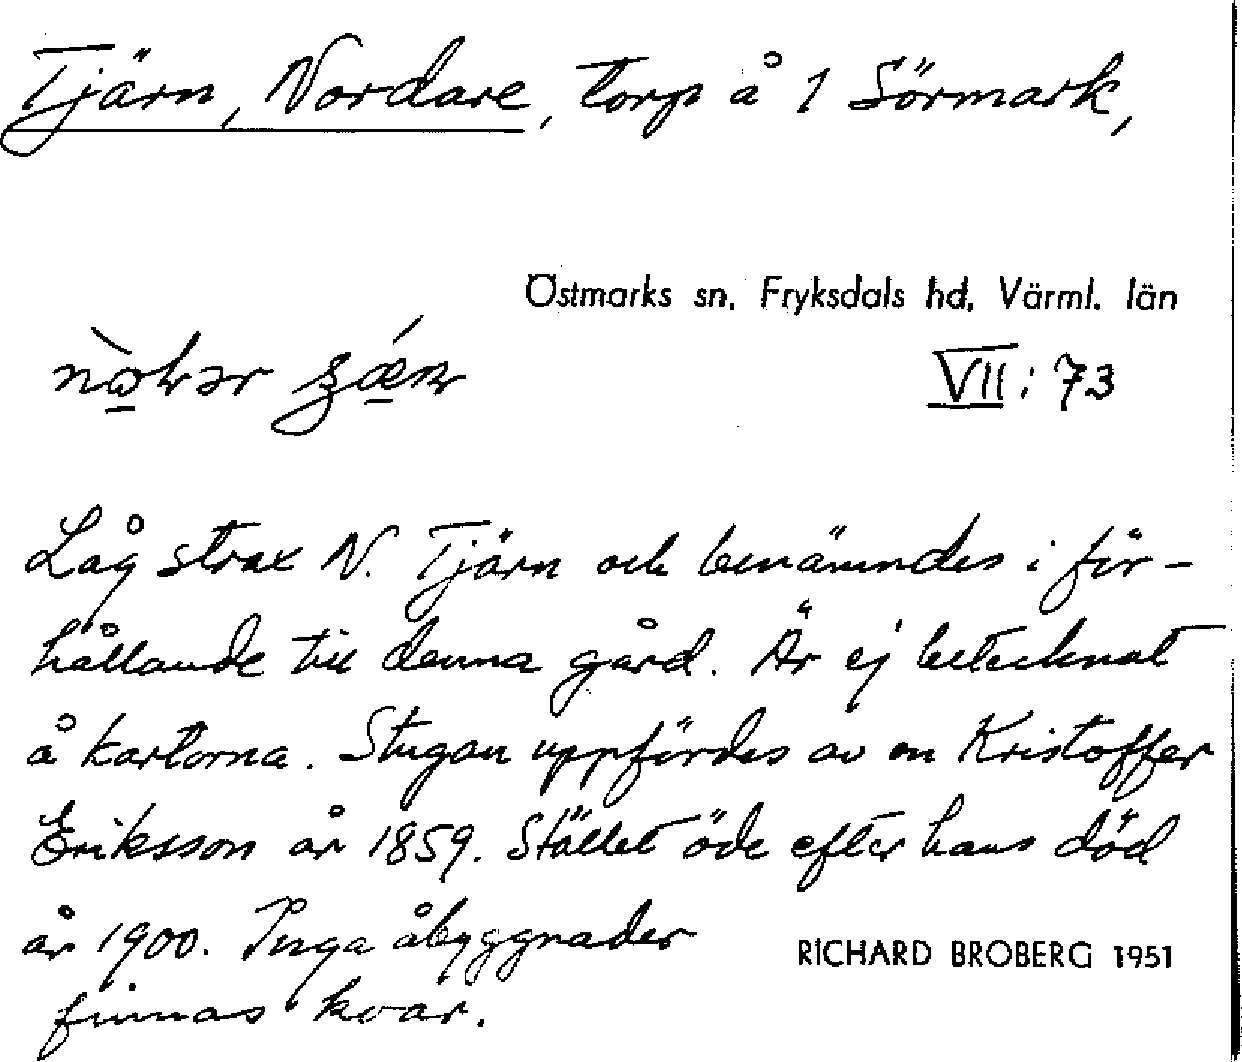 Tjärn, Nordare, torp å 1 Sörmark,
Östmarks sn, Fryksdals hd, Värml. län
VII: 73
Låg strax N. Tjärn och benämndes i för-
hållande till denna gård. Är ej betecknat
å kartorna. Stugan uppfördes av en Kristoffer
Eriksson år 1859. Stället öde efter hans död
år 1900. Inga åbyggnader
finnas kvar.
RICHARD BROBERG 1951